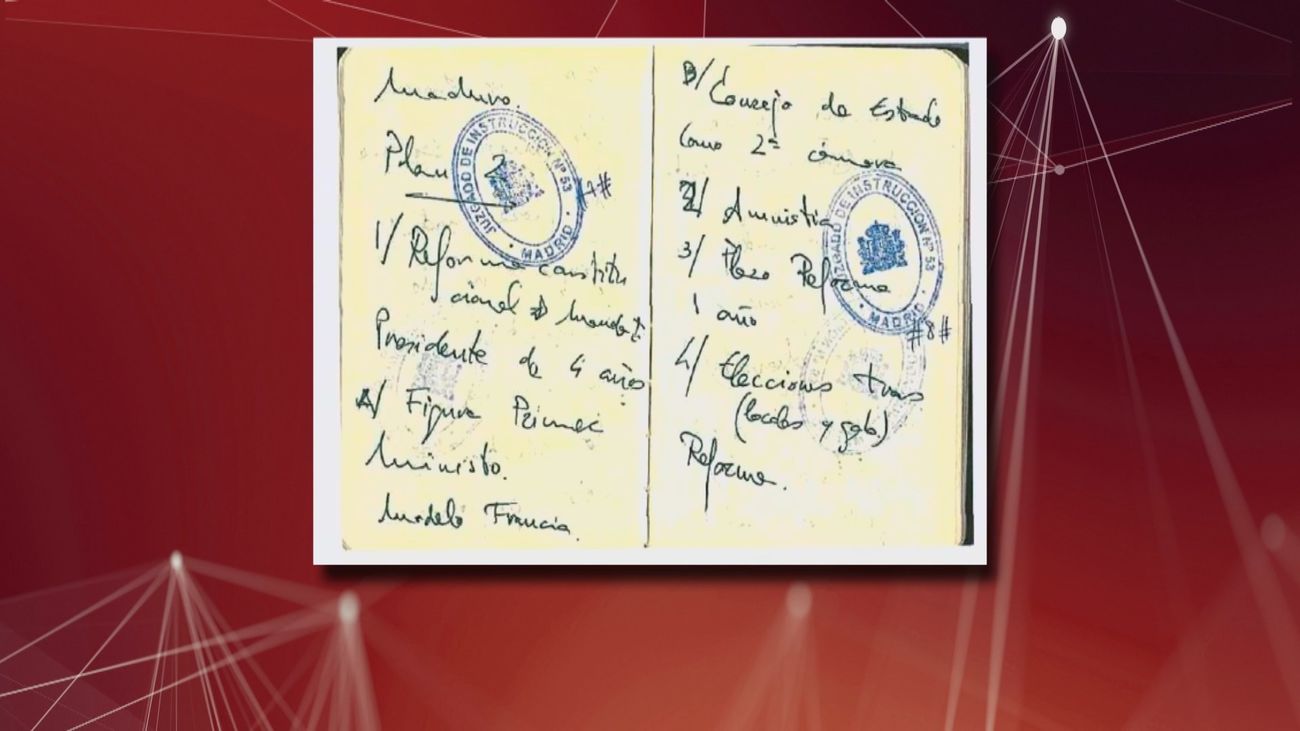 Maduro.
Plan 2
1/ Reforma constitu
cional
Presidente de 4 años
A/ Figura Primer
Ministo.
Modelo Francia.
JUZGADO DE INSTRUCCION Nº 53
MADRID
B/ Consejo de Estado
como 2ª cámara
2/ Amnistia
3/ Plazo Reforma
1 año
4/ Elecciones tras
(locales y gob.)
Reforma.
JUZGADO DE INSTRUCCION Nº 53
MADRID
#8#